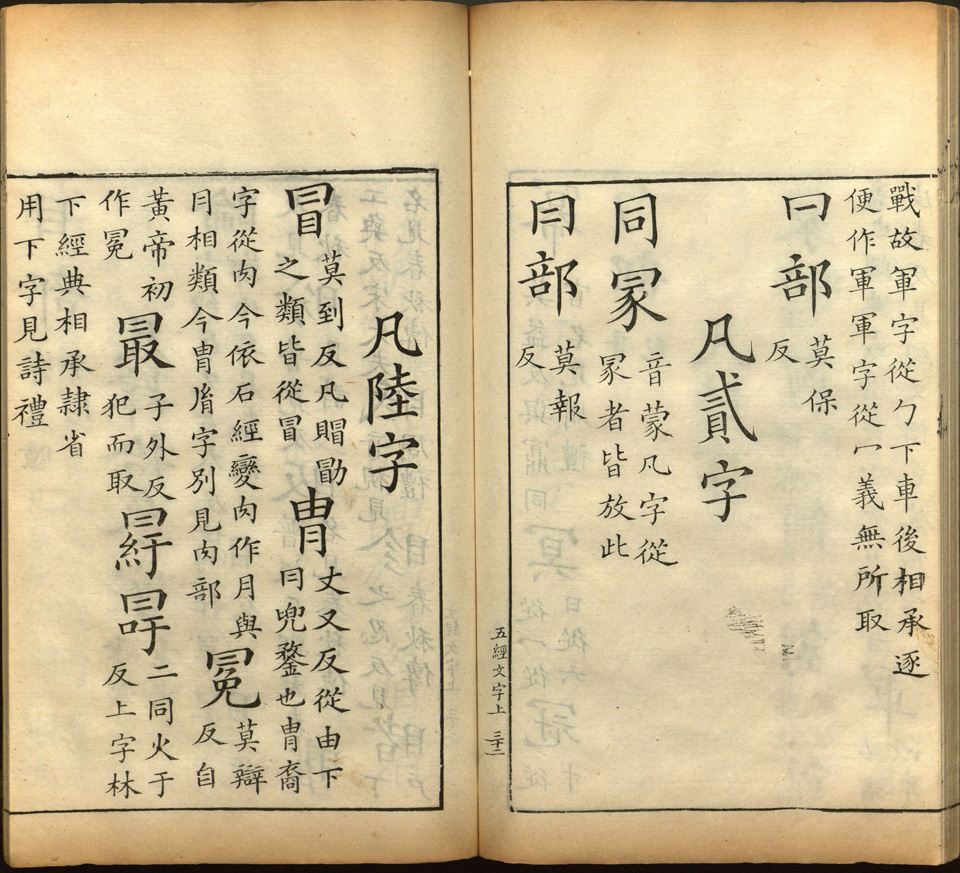 戰故軍字從勹下車後相承逐
便作軍軍字從冖義無所取
𠔼部
莫保
反
凡貳字
同冡
音蒙凡字從
冡者皆放此
冃部
莫報
反
五經文字上 三十二
凡陸字
冒
莫到反凡賵勖
之類皆從冒
胄
丈又反從由下
冃兜鍪也胄裔
字從肉今依石經變肉作月與
冃相類今胄字別見肉部
冕
莫辯
反自
黃帝初
作冕
最
子外反
犯而取
冔
二同火于
反上字林
下經典相承隸省
用下字見詩禮